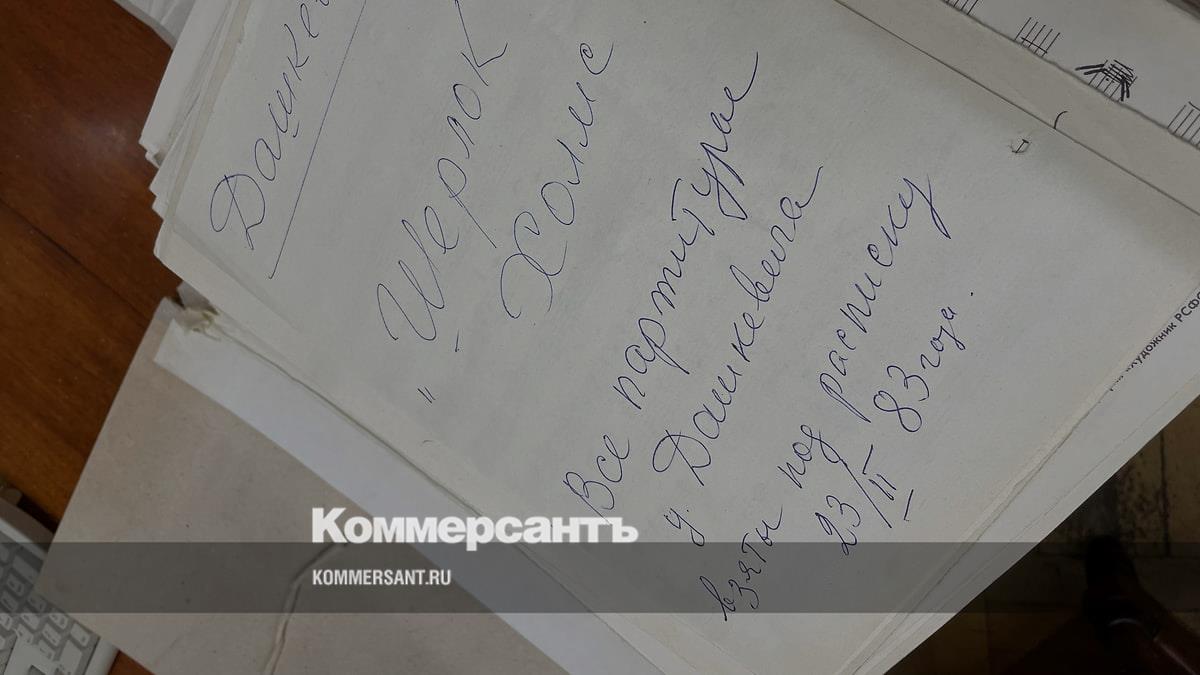 Дашке
„Шерлок
Холмс
Все партитуры
у Дашкевича
взяты под расписку
23/II 83 года.
Художник РСФС
Коммерсантъ
KOMMERSANT.RU